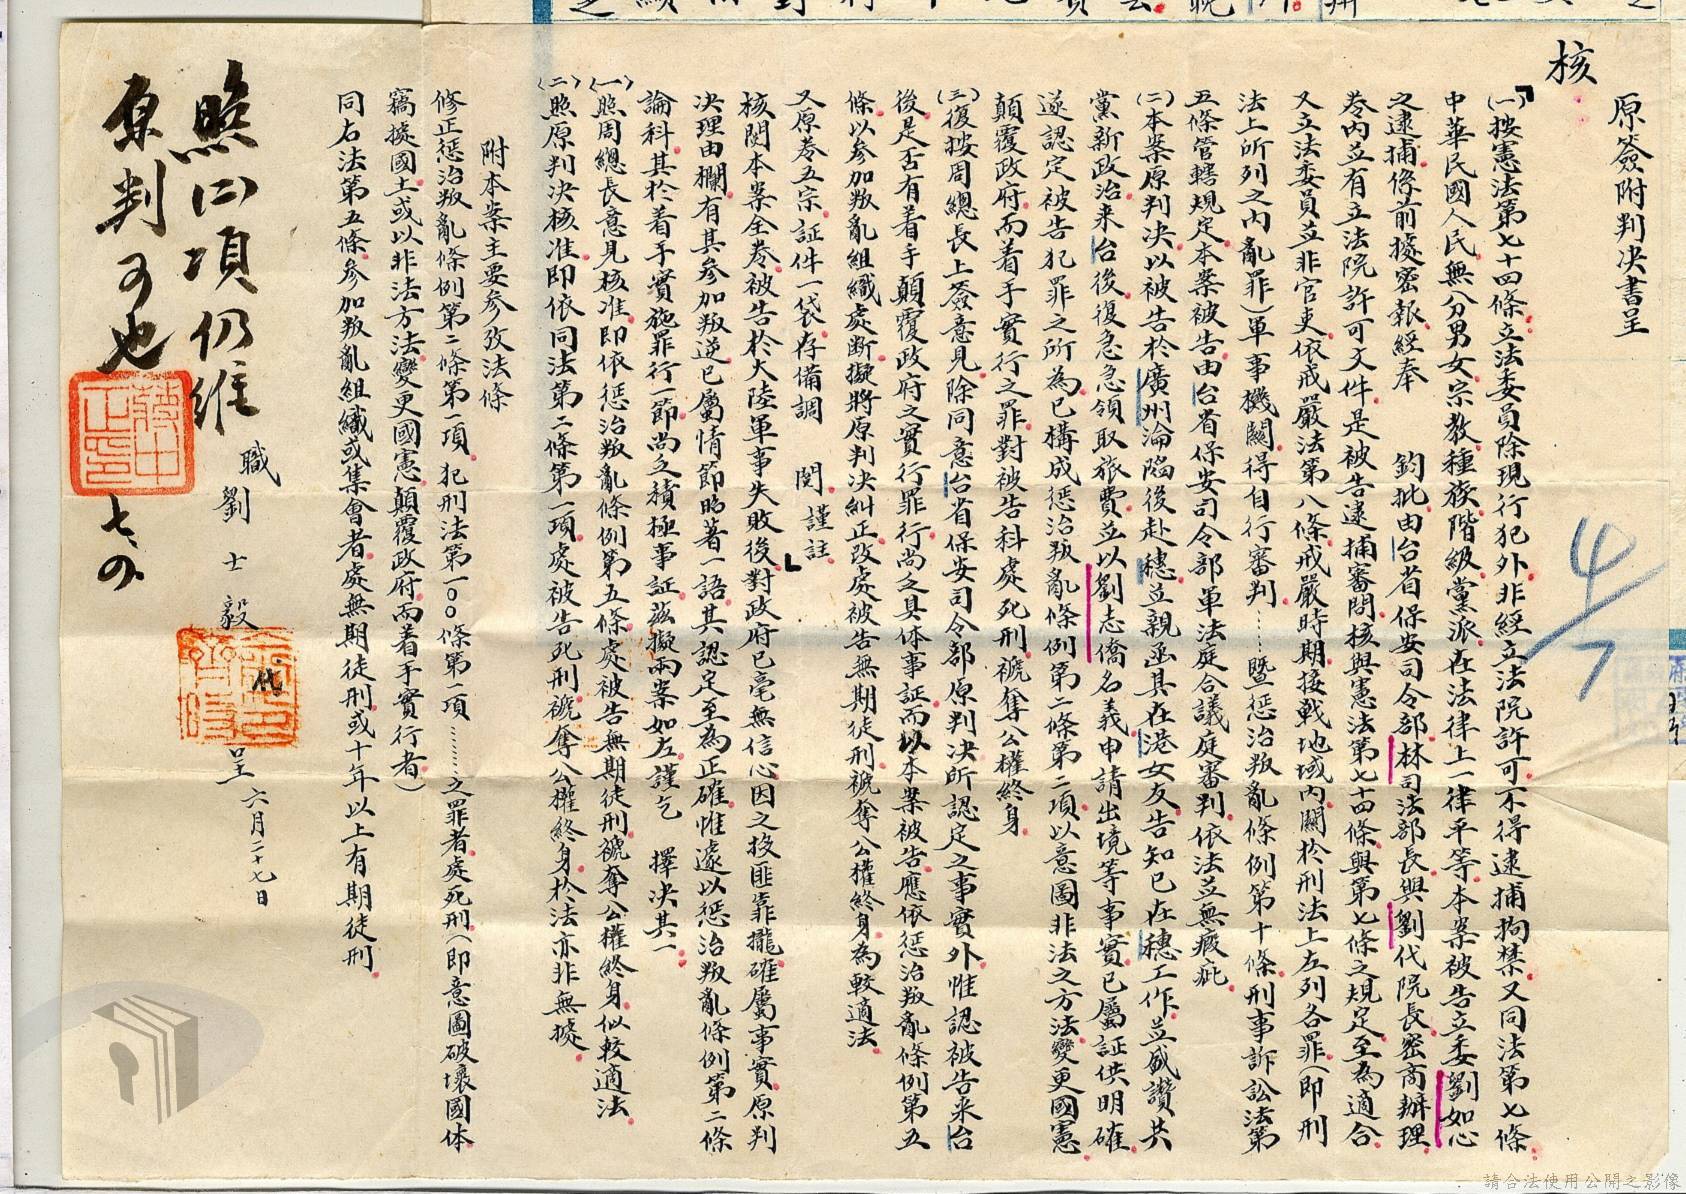 核
原簽附判決書呈
(一)按憲法第七十四條立法委員除現行犯外非經立法院許可不得逮捕拘禁又同法第七條
中華民國人民無分男女宗教種族階級黨派在法律上一律平等本案被告立委劉如心
之逮捕係前據密報經奉 鈞批由台省保安司令部林司法部長與劉代院長密商辦理
卷內並有立法院許可文件是被告逮捕審問核與憲法第七十四條與第七條之規定至為適合
又立法委員並非官吏依戒嚴法第八條戒嚴時期接戰地域內關於刑法上左列各罪(即刑
法上所列之內亂罪)軍事機關得自行審判……暨懲治叛亂條例第十條刑事訴訟法第
五條管轄規定本案被告由台省保安司令部軍法庭合議庭審判依法並無瑕疵
(二)本案原判決以被告於廣州淪陷後赴穗並親函其在港女友告知已在穗工作並盛讚共
黨新政治来台後復急急領取旅費並以劉志僑名義申請出境等事實已屬証供明確
遂認定被告犯罪之所為已構成懲治叛亂條例第二條第二項以意圖非法之方法變更國憲
顛覆政府而着手實行之罪對被告科處死刑褫奪公權終身
(三)復按周總長上簽意見除同意台省保安司令部原判決所認定之事實外惟認被告来台
後是否有着手顛覆政府之實行罪行尚乏具体事証而以本案被告應依懲治叛亂條例第五
條以參加叛亂組織處斷擬將原判決糾正改處被告無期徒刑褫奪公權終身為較適法
又原卷五宗証件一袋存備調 閱 謹註
核閱本案全卷被告於大陸軍事失敗後對政府已毫無信心因之投匪靠攏確屬事實原判
決理由欄有其參加叛逆已屬情節昭著一語其認定至為正確惟遽以懲治叛亂條例第二條
論科其於着手實施罪行一節尚乏積極事証茲擬兩案如左謹乞 擇決其一
(一)照周總長意見核准即依懲治叛亂條例第五條處被告無期徒刑褫奪公權終身似較適法
(二)照原判決核准即依同法第二條第一項處被告死刑褫奪公權終身於法亦非無據
附本案主要參攷法條
修正懲治叛亂條例第二條第一項 犯刑法第一〇〇條第一項……之罪者處死刑(即意圖破壞國体
竊據國土或以非法方法變更國憲顛覆政府而着手實行者)
同右法第五條參加叛亂組織或集會者處無期徒刑或十年以上有期徒刑
職劉士毅 代 呈 六月二十七日
照㈡項仍維
原判可也
蔣中正印
七、四
4/7
請合法使用公開之影像